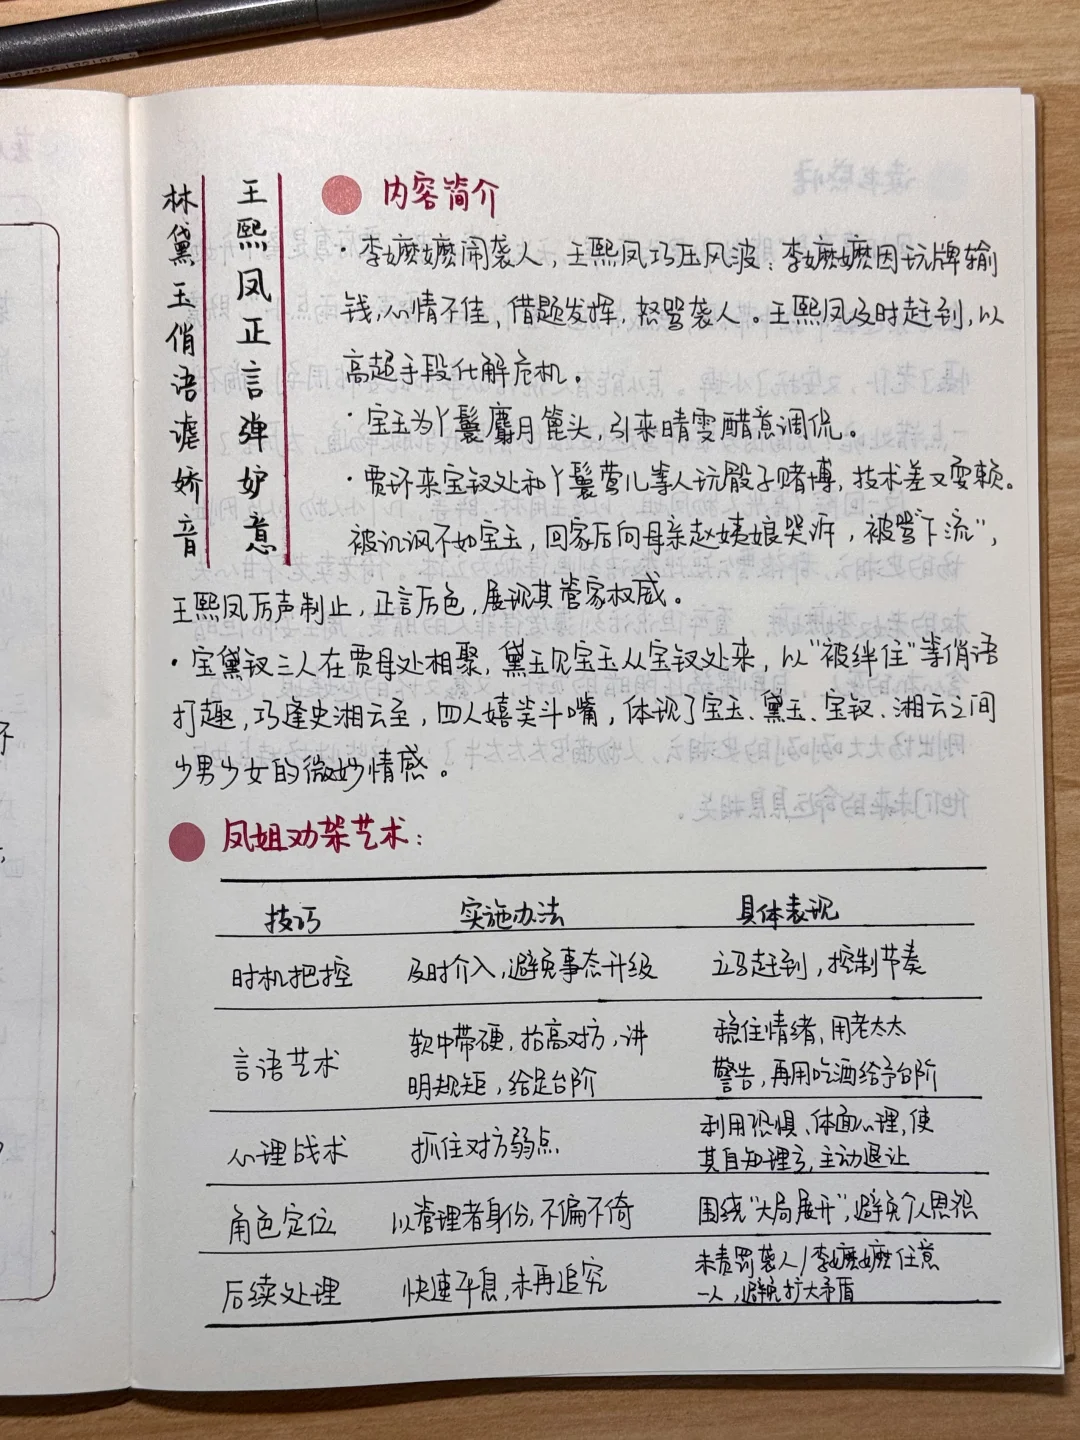 王熙凤正言弹妒意
林黛玉俏语谑娇音
内容简介
·李嬷嬷闹袭人,王熙凤巧压风波:李嬷嬷因玩牌输
钱,心情不佳,借题发挥,怒骂袭人。王熙凤及时赶到,以
高超手段化解危机。
·宝玉为丫鬟麝月篦头,引来晴雯醋意调侃。
·贾环来宝钗处和丫鬟莺儿等人玩骰子赌博,技术差又耍赖。
被讥讽不如宝玉,回家后向母亲赵姨娘哭诉,被骂"下流",
王熙凤厉声制止,正言厉色,展现其管家权威。
·宝黛钗三人在贾母处相聚,黛玉见宝玉从宝钗处来,以"被绊住"等俏语
打趣,巧逢史湘云至,四人嬉笑斗嘴,体现了宝玉、黛玉、宝钗、湘云之间
少男少女的微妙情感。
凤姐劝架艺术:
技巧 实施办法 具体表现
时机把控 及时介入,避免事态升级 立马赶到,控制节奏
言语艺术 软中带硬,抬高对方,讲
明规矩,给足台阶
稳住情绪,用老太太
警告,再用吃酒给予台阶
心理战术 抓住对方弱点
利用恐惧、体面心理,使
其自知理亏,主动退让
角色定位 以管理者身份,不偏不倚 围绕"大局展开",避免个人恩怨
后续处理 快速平息,未再追究
未责罚袭人/李嬷嬷任意
一人,避免扩大矛盾